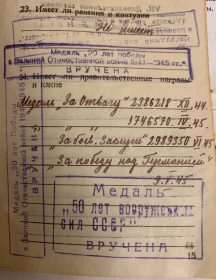 23. Имеет ли ранения и контузии
Не имеет
Медаль "30 лет победы
в Великой Отечественной войне 1941-1945 гг."
ВРУЧЕНА
Имеет ли правительственные награды
и какие
Медаль "За Отвагу" 2386218 XII.44
1746570 IV.45
"За боев. Заслуги" 2989350 VI.45
"За победу над Германией"
9.V.45
Медаль
"50 лет вооружённых
сил СССР"
ВРУЧЕНА
15